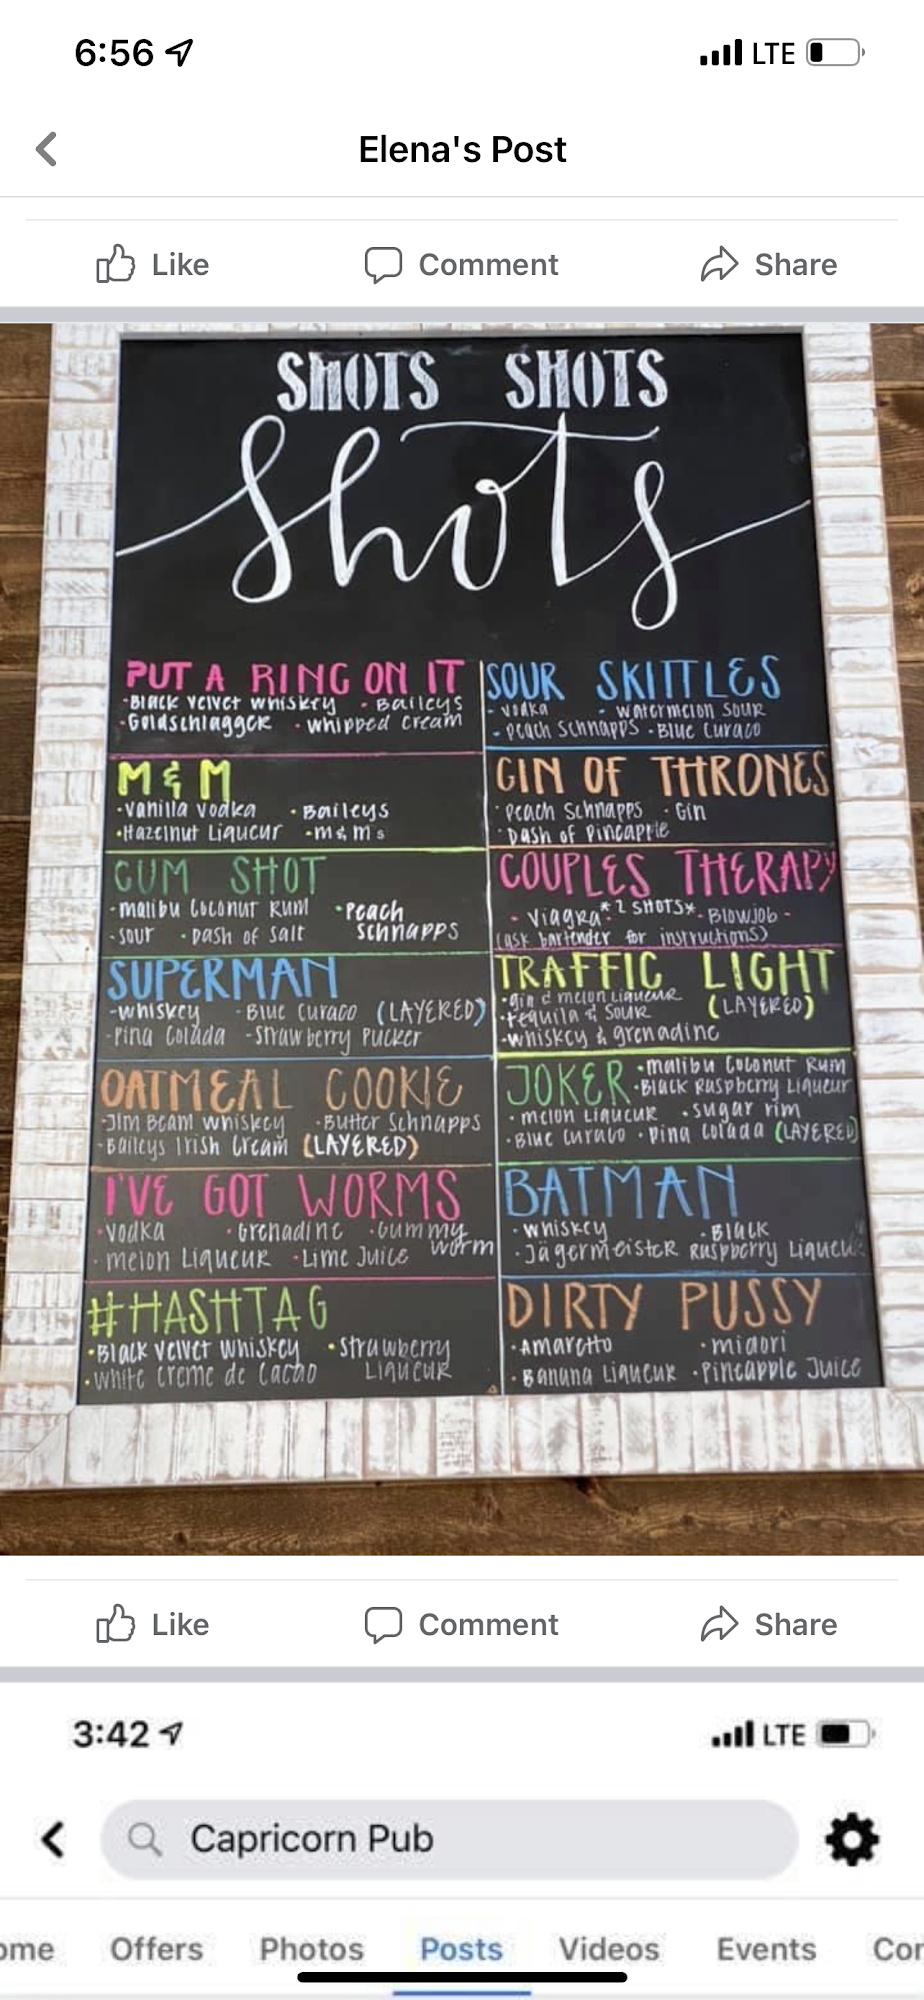 6:56
LTE
Elena's Post
Like
Comment
Share
SHOTS SHOTS
Shots
PUT A RING ON IT
•Black Velvet Whiskey •Baileys
•Goldschlagger •Whipped Cream
M & M
•Vanilla Vodka •Baileys
•Hazelnut Liqueur •m&m's
CUM SHOT
•malibu Coconut Rum •Peach
•sour •Dash of Salt schnapps
SUPERMAN
-whiskey -Blue Curaco (LAYERED)
-Pina Colada -Strawberry Pucker
OATMEAL COOKIE
-Jim Beam Whiskey •Butter Schnapps
-Baileys Irish Cream (LAYERED)
I'VE GOT WORMS
•Vodka •Grenadine •Gummy
•melon Liqueur •Lime Juice worm
#HASHTAG
•Black Velvet Whiskey •Strawberry
•White Creme de Cacao Liqueur
SOUR SKITTLES
- Vodka - Watermelon Sour
- Peach Schnapps •Blue Curaco
GIN OF THRONES
•Peach Schnapps •Gin
•Dash of Pineapple
COUPLES THERAPY
- Viagra *2 SHOTS* - Blowjob -
(ask bartender for instructions)
TRAFFIC LIGHT
•gin & melon Liqueur (LAYERED)
•Tequila & Sour
•Whiskey & grenadine
JOKER •malibu Coconut Rum
•Black Raspberry Liqueur
•melon Liqueur •sugar rim
•Blue Curaco •Pina Colada (LAYERED)
BATMAN
•Whiskey •Black
•Jägermeister Raspberry Liqueur
DIRTY PUSSY
•Amaretto •midori
•Banana Liqueur •Pineapple Juice
Like
Comment
Share
3:42
LTE
Capricorn Pub
ome
Offers
Photos
Posts
Videos
Events
Cor